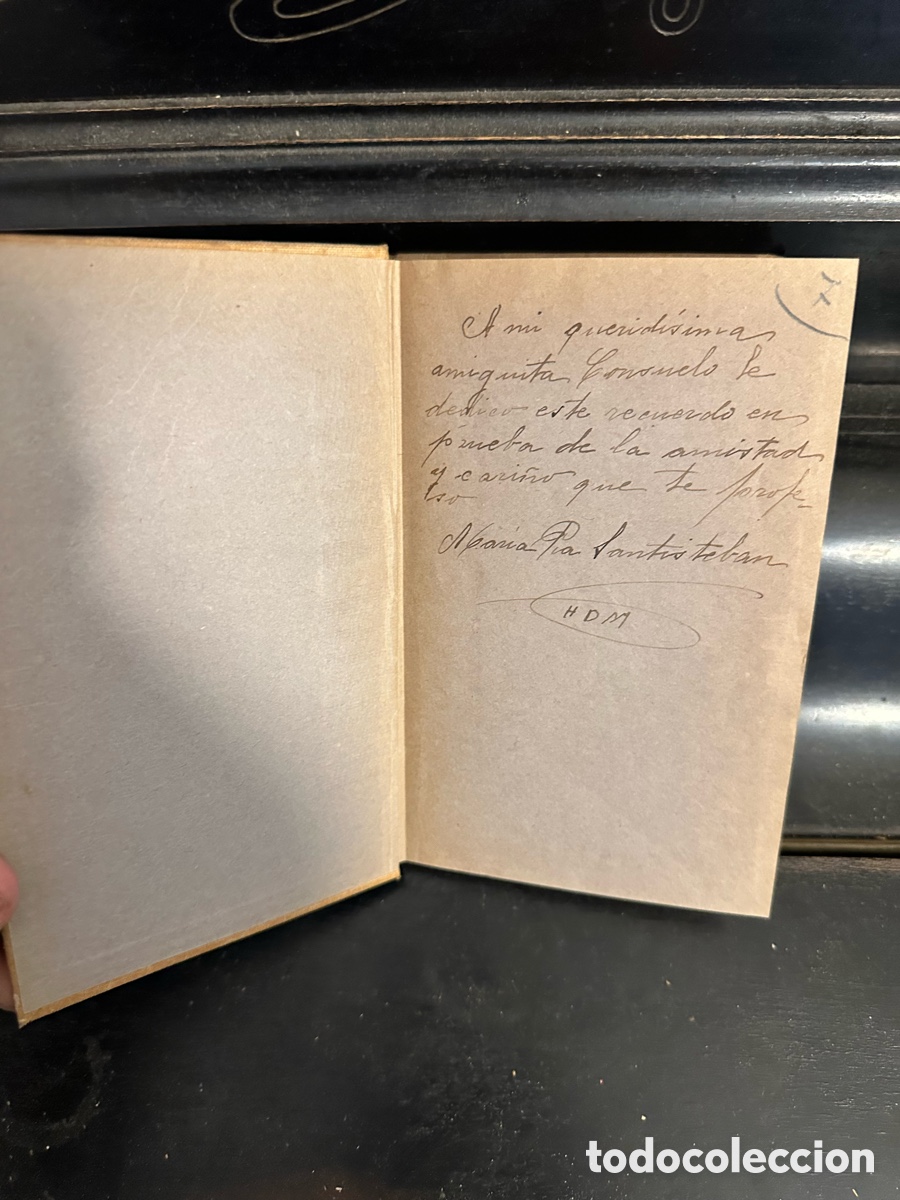 A mi queridísima
amiguita Consuelo le
dedico este recuerdo en
prueba de la amistad
y cariño que te profe-
so
María Pía Santisteban
HDM
todocoleccion